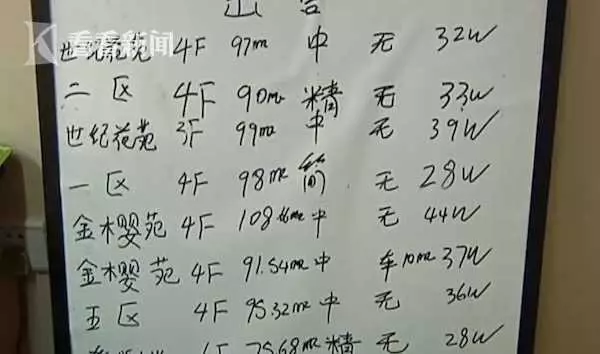 出售
看看新闻
世纪花苑 4F 97m 中 无 32W
二区 4F 90m 精 无 33W
世纪花苑 3F 99m 中 无 39W
一区 4F 98m² 简 无 28W
金樱苑 4F 108.46m 中 无 44W
金樱苑 4F 91.54m² 中 车10m² 37W
五区 4F 95.32m² 中 无 36W
75.68m² 精 无 28W